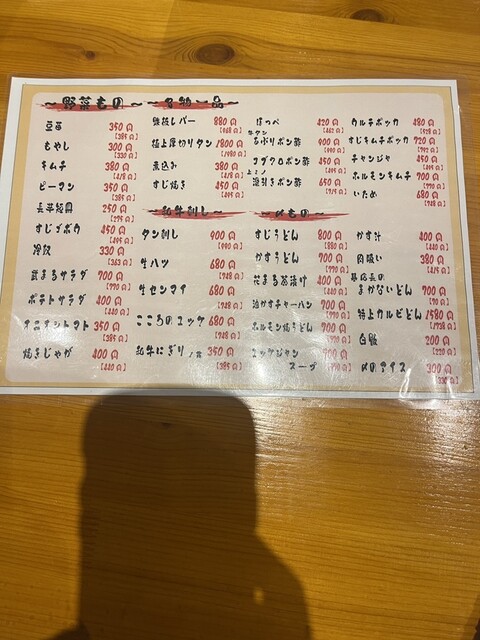 野菜もの
豆苗 350円
[385円]
もやし 300円
[330円]
キムチ 380円
[418円]
ピータン 350円
[385円]
長芋短冊 250円
[275円]
すじゴボウ 450円
[495円]
冷奴 330円
[363円]
武まるサラダ 700円
[770円]
ポテトサラダ 400円
[440円]
オニオントマト 350円
[385円]
焼きじゃが 400円
[440円]
名物一品
塩技レバー 880円
[968円]
極上厚切りタン 1800円
[1980円]
煮込み 380円
[418円]
すじ焼き 450円
[495円]
和牛刺し
タン刺し 900円
[990円]
牛ハツ 680円
[748円]
牛センマイ 680円
[748円]
こころのユッケ 680円
[748円]
和牛にぎり/1貫 350円
[385円]
はっぺ 420円
[462円]
牛タン
あぶりポン酢 900円
[990円]
コブクロポン酢 450円
[495円]
上ミノ
湯引きポン酢 650円
[715円]
ウルチポッカ 480円
[528円]
すじキムチポッカ 720円
[792円]
チャンジャ 450円
[495円]
ホルモンキムチ 700円
[770円]
いため 680円
[748円]
〆もの
すじうどん 800円
[880円]
かすうどん 700円
[770円]
武まる茶漬け 400円
[440円]
油かすチャーハン 700円
[770円]
ホルモン焼うどん 700円
[770円]
ユッケジャン
スープ 700円
[770円]
かす汁 400円
[440円]
肉吸い 380円
[418円]
店長の
まかないどん 700円
[770円]
特上カルビどん 1580円
[1738円]
白飯 200円
[220円]
〆のアイス 300円
[330円]